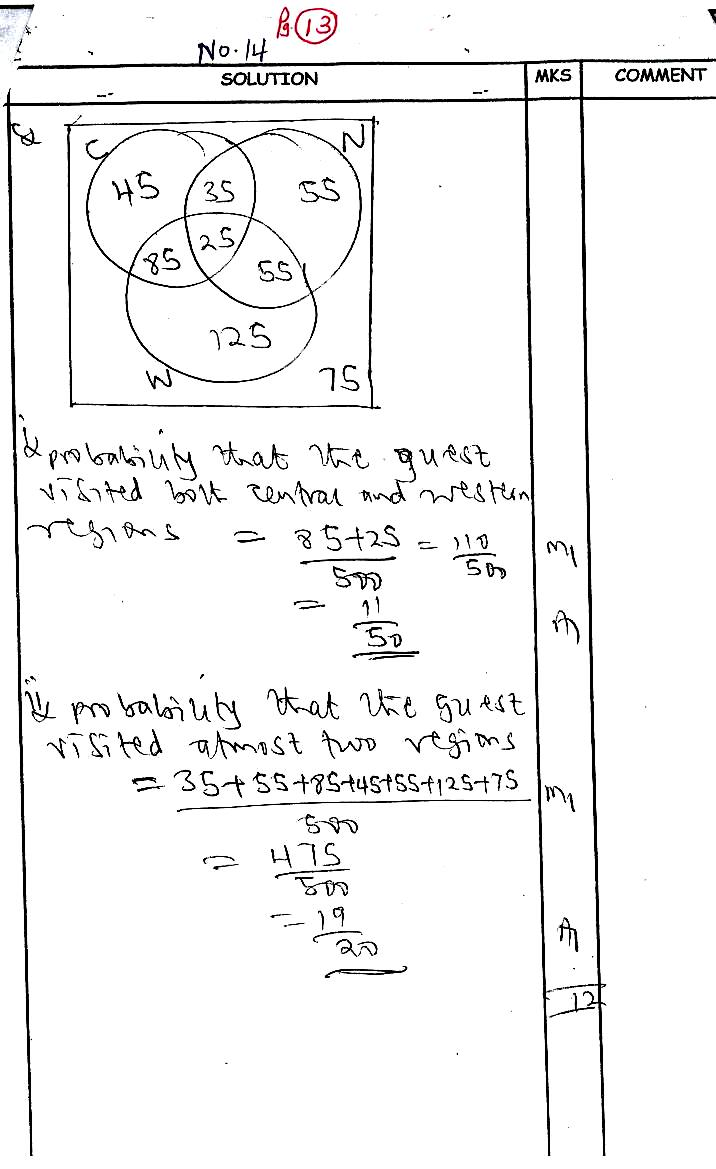 Pg. 13
No. 14
SOLUTION MKS COMMENT
C N
45 35 55
25
85 55
125
W 75
i probability that the guest
visited both central and western
regions = 85+25 = 110 M1
500 500
= 11 A1
50
ii probability that the guest
visited atmost two regions
= 35+55+85+45+55+125+75 M1
500
= 475
500
= 19 A1
20
12